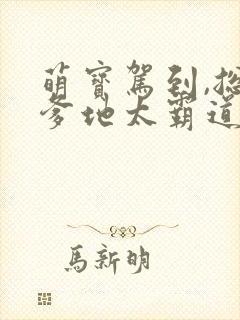 萌寶駕到,
爹地太霸道
馬新明